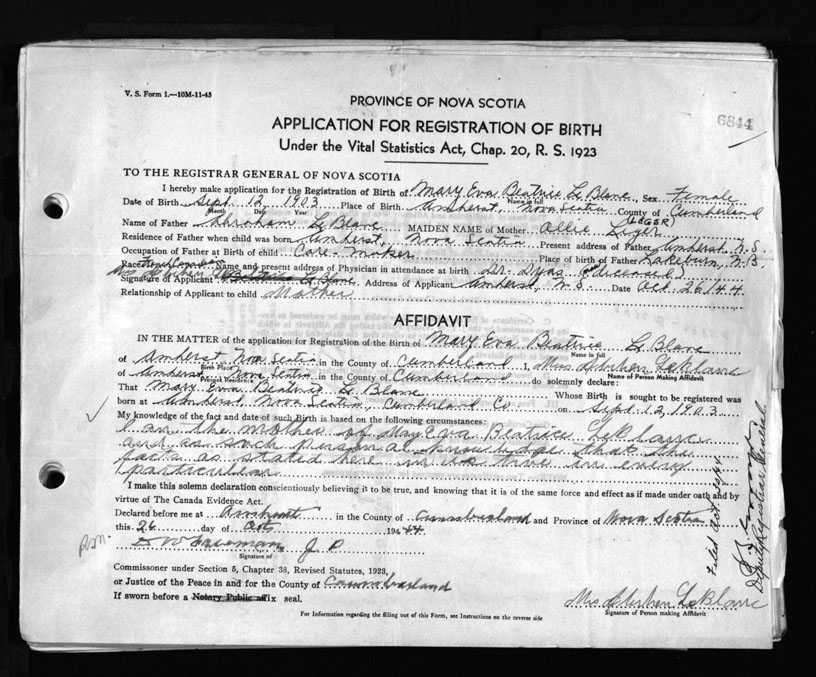 V. S. Form 1.—10M-11-43
PROVINCE OF NOVA SCOTIA
6844
APPLICATION FOR REGISTRATION OF BIRTH
Under the Vital Statistics Act, Chap. 20, R. S. 1923
TO THE REGISTRAR GENERAL OF NOVA SCOTIA
I hereby make application for the Registration of Birth of Mary Eva Beatrice Le Blanc, Sex Female
Name in full
Date of Birth Sept. 12, 1903 Place of Birth Amherst, Nova Scotia County of Cumberland
Month Date Year
(LEGER)
Name of Father Abraham Le Blanc MAIDEN NAME of Mother Allie Leger
Residence of Father when child was born Amherst, Nova Scotia Present address of Father Amherst N.S.
Occupation of Father at Birth of child Care-Maker Place of birth of Father Lakeburn, N.B.
Race French Canadian Name and present address of Physician in attendance at birth Dr. Dyas (deceased)
Signature of Applicant Mrs Le Blanc Address of Applicant Amherst, N.S. Date Oct. 26/44
Relationship of Applicant to child Mother
AFFIDAVIT
IN THE MATTER of the application for Registration of the Birth of Mary Eva Beatrice Le Blanc
Name in full
of Amherst Nova Scotia in the County of Cumberland I, Mrs LeBlanc
Birth Place Name of Person Making Affidavit
of Amherst Nova Scotia in the County of Cumberland do solemnly declare:
Present Residence
That Mary Eva Beatrice Le Blanc Whose Birth is sought to be registered was
born at Amherst, Nova Scotia, Cumberland Co on Sept. 12, 1903
My knowledge of the fact and date of such Birth is based on the following circumstances:
I am the mother of May Eva Beatrice LeBlanc
and as such personal knowledge that the
facts as stated here in is true in every
particular
I make this solemn declaration conscientiously believing it to be true, and knowing that it is of the same force and effect as if made under oath and by
virtue of The Canada Evidence Act.
Declared before me at Amherst in the County of Cumberland and Province of Nova Scotia
this 26 day of Oct 1944
Freeman J P
Signature of
Commissioner under Section 5, Chapter 38, Revised Statutes, 1923,
or Justice of the Peace in and for the County of Cumberland
If sworn before a Notary Public affix seal.
Mrs Le Blanc
Signature of Person making Affidavit
For Information regarding the filling out of this Form, see Instructions on the reverse side
Filed Oct.
Deputy Registrar General.